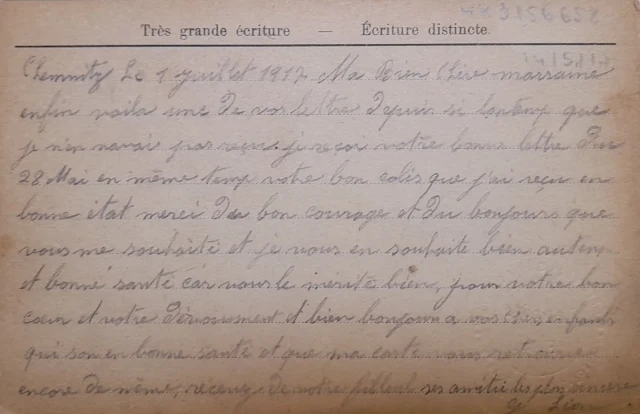 Très grande écriture — Écriture distincte.
Chemnitz Le 1 Juillet 1917 Ma Bien Chère marraine
enfin voila une de vos lettre depuis si lontemp que
je n'en navai pas reçu. je reçoi votre bonne lettre Du
28 Mai en même temp votre bon colis que j'ai reçu en
bonne état merci Du bon courage et Du bonjours que
vous me souhaité et je vous en souhaite bien autemp
et bonne santé car vous le mérité bien, pour votre bon
cœur et votre Dévouement et bien bonjour a vos chers enfants
qui son en bonne santé et que ma carte vous retrouve
encore de même, recevez de votre filleul ses amitié les plus sincère